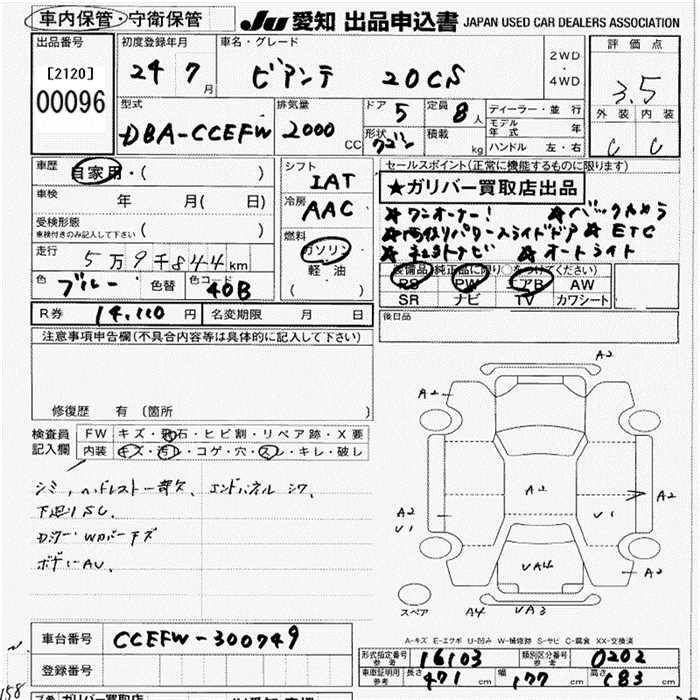 車内保管・守衛保管
JU 愛知 出品申込書 JAPAN USED CAR DEALERS ASSOCIATION
出品番号
[2120]
00096
初度登録年月
24 7月
車名・グレード
ビアンテ 20CS
2WD・4WD
評価点
3.5
外装 内装
C C
型式
DBA-CCEFW
排気量
2000 CC
ドア 5
定員 8人
形状 ワゴン
積載 kg
ディーラー・並行
モデル年式 年
ハンドル 左・右
車歴 自家用・( )
車検 年 月( 日)
受検形態
車検付きのみ記入して下さい ( )
走行 5万9千844km
色 ブルー 色替 色コード 40B
シフト
IAT
冷房
AAC
燃料
ガソリン
軽油
( )
セールスポイント(正常に機能するものに限ります)
★ガリバー買取店出品
★ワンオーナー! ★バックカメラ
★両側パワースライドドア ★ETC
★ナビ ★オートライト
装備品(純正品に限り○をつけてください)
PS PW エアB AW
SR ナビ TV カワシート
R券 14,110円 名変期限 月 日
後日品
注意事項申告欄(不具合内容等は具体的に記入して下さい)
修復歴 有(箇所 )
検査員記入欄
FW キズ・飛石・ヒビ割・リペア跡・X要
内装 キズ・汚レ・コゲ・穴・スレ・キレ・破し
シミ、ヘッドレスト一部欠、エンドパネルシワ、
下廻りSC.
ボディーAU.
A2
A2
A2
A2
U1
U1
A2
A2
UA4
スペア
A4 UA3
A-キズ E-エクボ U-凹み W-補修跡 S-サビ C-腐食 XX-交換済
車台番号 CCEFW-300749
登録番号
形式指定番号 参考 16103
類別区分番号 参考 0202
車車証明用 参考 長さ 471cm 幅 177cm 高さ 183cm
158
ガリバー買取店